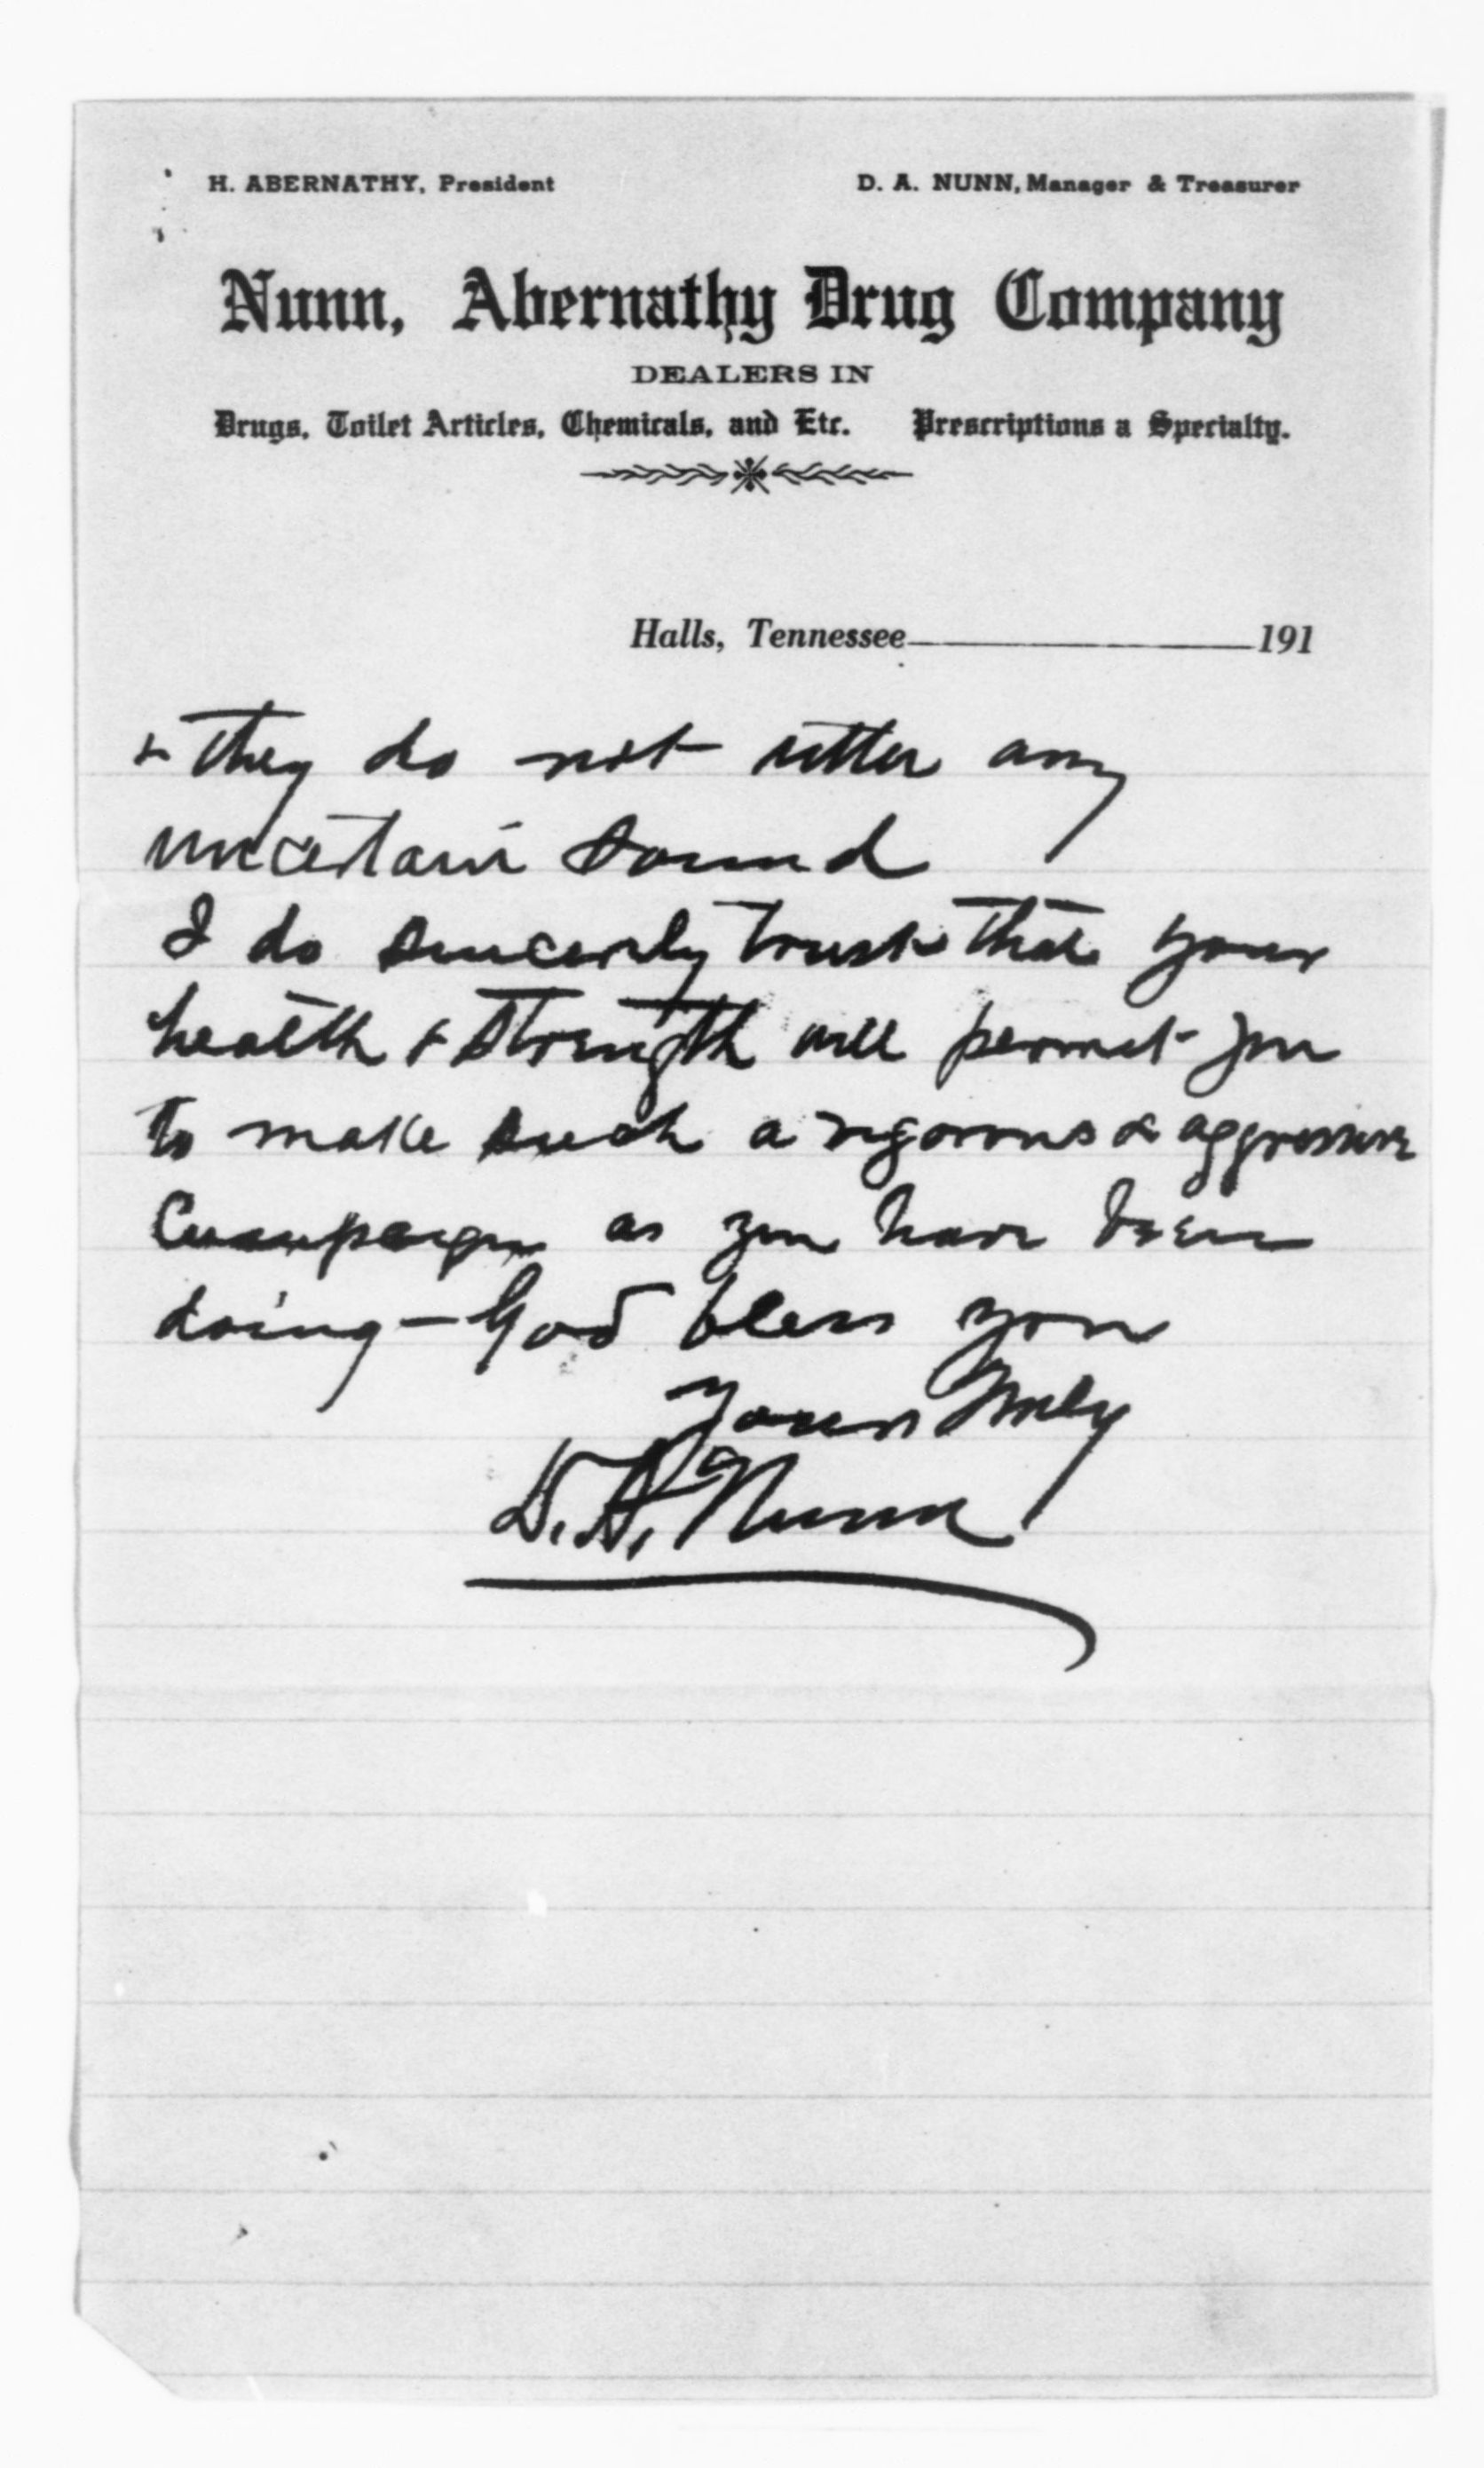 H. ABERNATHY, President D. A. NUNN, Manager & Treasurer
Nunn, Abernathy Drug Company
DEALERS IN
Drugs, Toilet Articles, Chemicals, and Etc. Prescriptions a Specialty.
Halls, Tennessee 191
& they do not utter any
uncertain sound
I do sincerely trust that your
health & strength will permit you
to make such a vigorous & aggressive
Campaign as you have been
doing - God bless you
Yours truly
D. A. Nunn